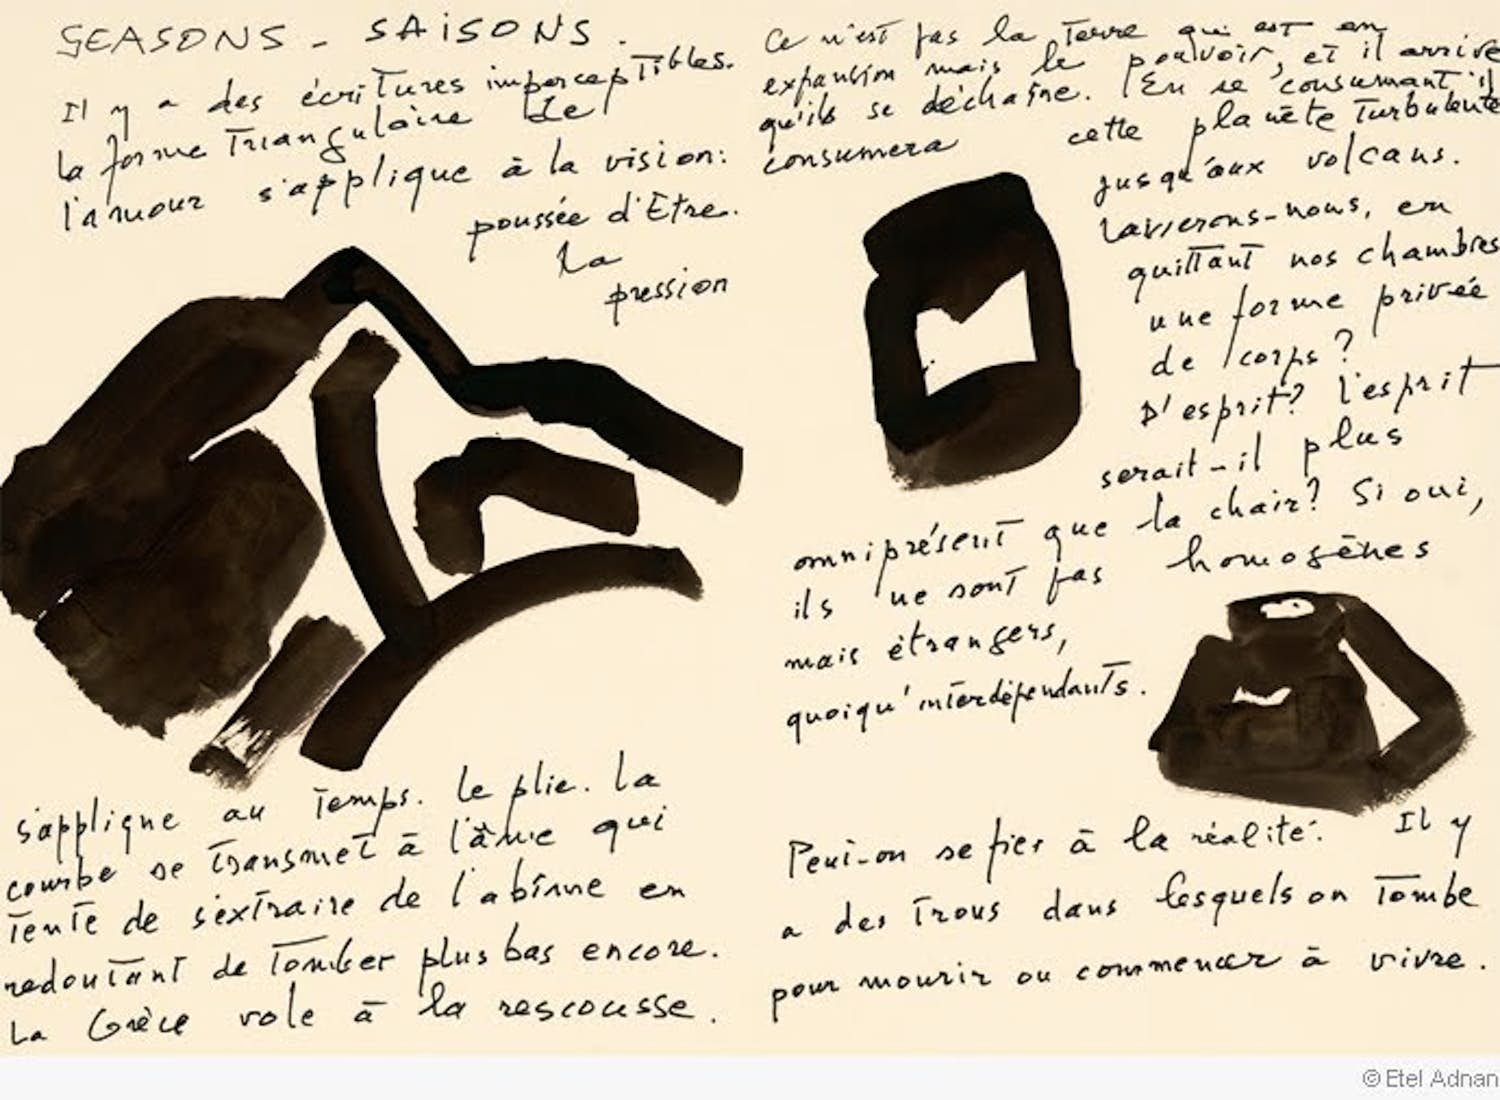 SEASONS - SAISONS.
Il y a des écritures imperceptibles.
la forme triangulaire de
l'amour s'applique à la vision:
poussée d'Etre.
La
pression
s'applique au temps. Le plie. La
courbe se transmet à l'âme qui
tente de s'extraire de l'abîme en
redoutant de tomber plus bas encore.
La Grèce vole à la rescousse.
Ce n'est pas la Terre qui est en
expansion mais le pouvoir, et il arrive
qu'ils se déchaîne. En se consumant il
consumera cette planète turbulente
jusqu'aux volcans.
Laisserons-nous, en
quittant nos chambres
une forme privée
de corps?
D'esprit? L'esprit
serait-il plus
omniprésent que la chair? Si oui,
ils ne sont pas homogènes
mais étrangers,
quoiqu'interdépendants.
Peut-on se fier à la réalité. Il y
a des trous dans lesquels on tombe
pour mourir ou commencer à vivre.
© Etel Adnan